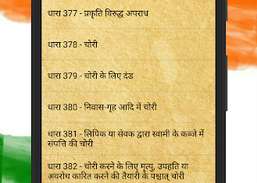 धारा 377 - प्रकृति विरुद्ध अपराध
धारा 378 - चोरी
धारा 379 - चोरी के लिए दंड
धारा 380 - निवास-गृह आदि में चोरी
धारा 381 - लिपिक या सेवक द्वारा स्वामी के कब्जे में
संपत्ति की चोरी
धारा 382 - चोरी करने के लिए मृत्यु, उपहति या
अवरोध कारित करने की तैयारी के पश्चात् चोरी